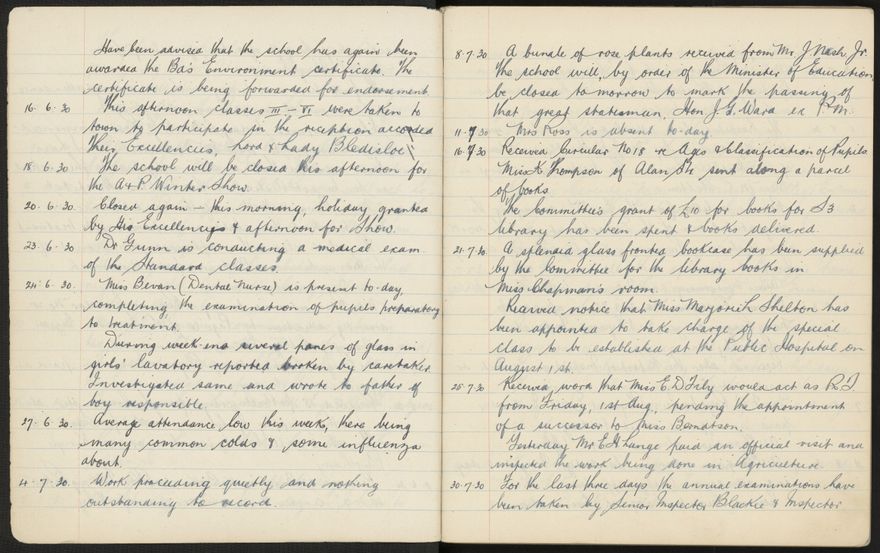 Have been advised that the school has again been
awarded the Bd's Environment certificate. The
certificate is being forwarded for endorsement
16. 6. 30 This afternoon classes III – VI were taken to
town to participate in the reception accorded
Their Excellencies, Lord & Lady Bledisloe
18. 6. 30. The school will be closed this afternoon for
the A & P Winter Show.
20. 6. 30. Closed again – this morning, holiday granted
by His Excellency & afternoon for Show.
23. 6. 30 Dr Gunn is conducting a medical exam
of the Standard classes.
24. 6. 30. Miss Bevan (Dental Nurse) is present to-day
completing the examination of pupils preparatory
to treatment.
During week-end several panes of glass in
girls' lavatory reported broken by caretaker.
Investigated same and wrote to father of
boy responsible.
27. 6. 30. Average attendance low this week, there being
many common colds & some influenza
about.
4. 7. 30. Work proceeding quietly and nothing
outstanding to record.
8. 7. 30 A bundle of rose plants received from Mr J Nash Jr.
The school will, by order of the Minister of Education,
be closed to-morrow to mark the passing of
that great statesman, Hon J. G. Ward ex P.M.
11. 7 30 Miss Ross is absent to-day.
16. 7 30 Received Circular No 18 re Ages & Classification of Pupils
Miss K Thompson of Alan St sent along a parcel
of books.
The Committee's grant of £10 for books for S3
library has been spent & books delivered.
21. 7. 30. A splendid glass fronted bookcase has been supplied
by the Committee for the library books in
Miss Chapman's room.
Received notice that Miss Marjorieh Shelton has
been appointed to take charge of the special
class to be established at the Public Hospital on
August 1st.
25. 7. 30 Received word that Miss E. D would act as R I
from Friday, 1st Aug., pending the appointment
of a successor to Miss Berndtson.
Yesterday Mr E H Lange paid an official visit and
inspected the work being done in Agriculture.
30. 7 30 For the last three days the annual examinations have
been taken by Senior Inspector Blackie & Inspector